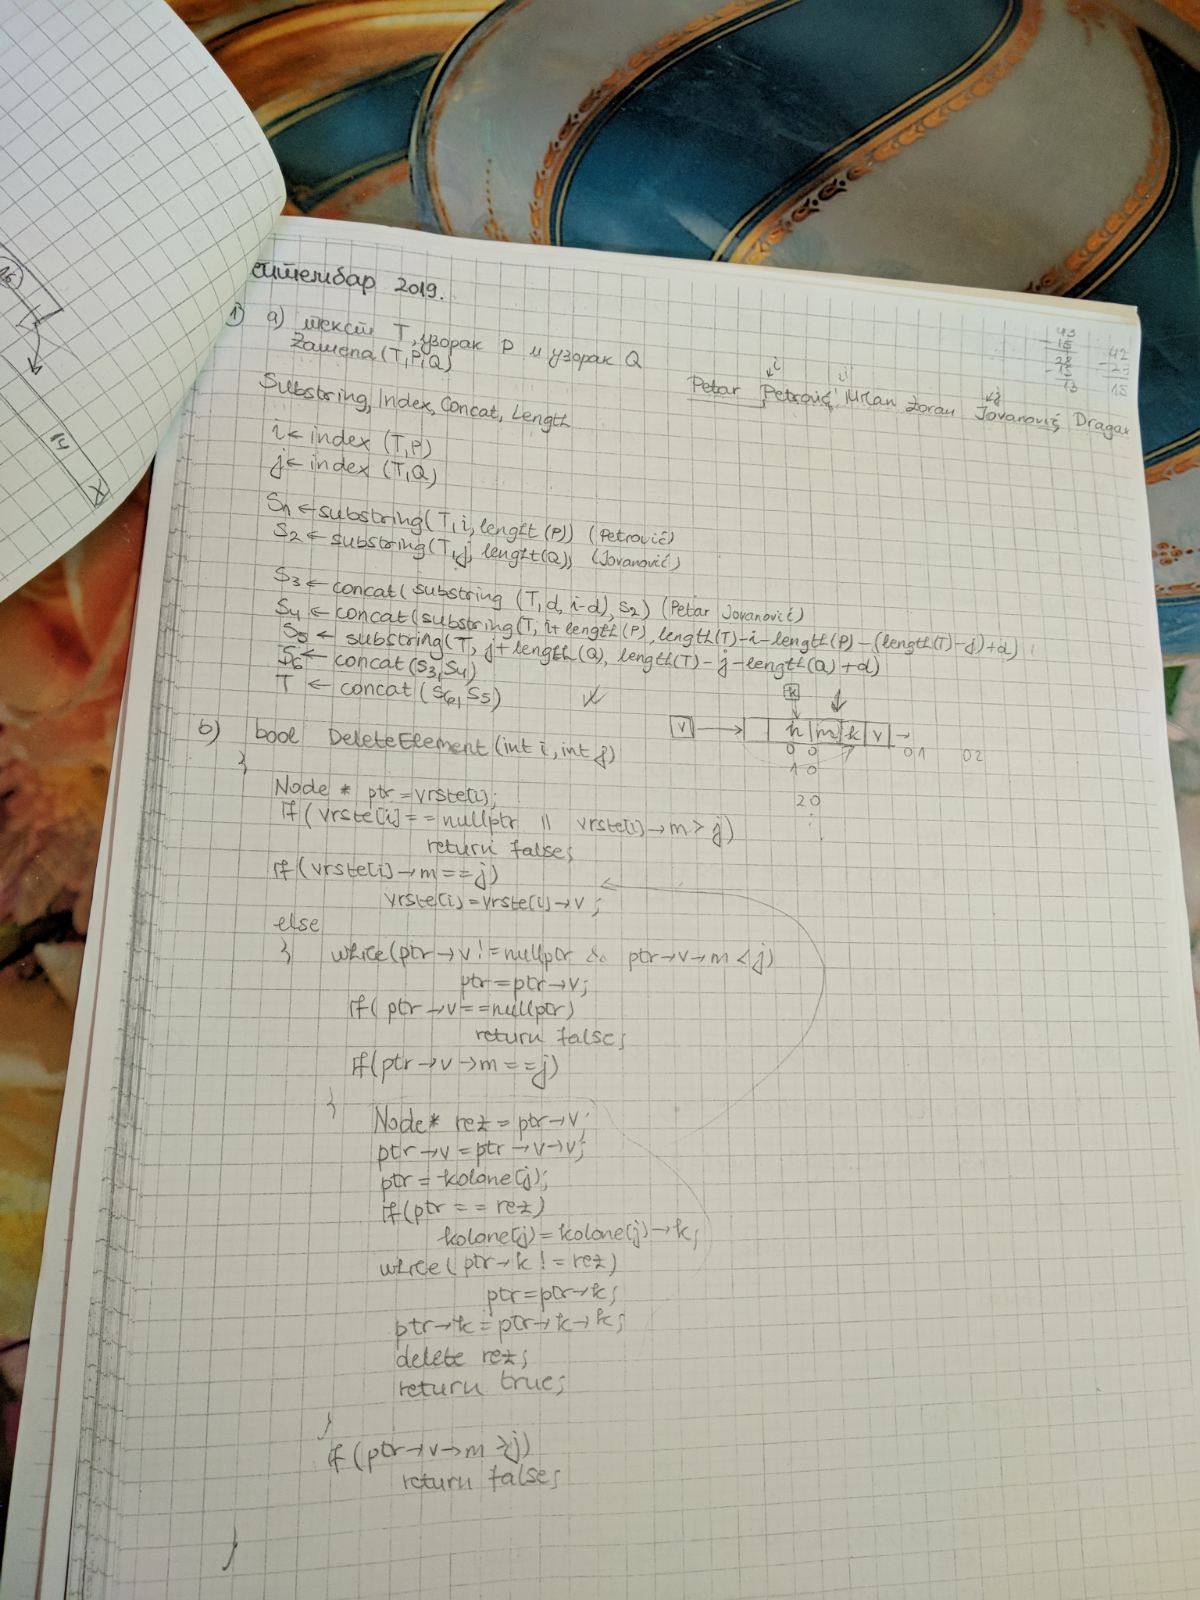 ептембар 2019.
1) а) текст T, узорак P и узорак Q
Zamena(T,P,Q)
Petar Petrović, Milan Zoran Jovanović, Dragan
i
i
j
43
42
15
Substring, Index, Concat, Length
i ← index (T,P)
j ← index (T,Q)
S1 ← substring(T, i, lenght(P)) (Petrović)
S2 ← substring(T, j, lenght(Q)) (Jovanović)
S3 ← concat(substring (T,d, i-d), S2) (Petar Jovanović)
S4 ← concat(substring(T, i+length(P), length(T)-i-length(P)-(length(T)-j)+d)
S5 ← substring(T, j+length(Q), length(T)-j-length(Q)+d)
S6 ← concat(S3,S4)
T ← concat(S6,S5)
k
V → n m k v →
0 0 0 1 0 2
1 0
2 0
б) bool DeleteElement(int i, int j)
{
Node * ptr = vrste[i];
if( vrste[i] == nullptr || vrste[i]→m > j)
return false;
if(vrste[i]→m == j)
vrste[i]=vrste[i]→v;
else
{ while(ptr→v != nullptr && ptr→v→m < j)
ptr=ptr→v;
if( ptr→v==nullptr)
return false;
if(ptr→v→m==j)
{
Node* rez = ptr→v;
ptr→v = ptr→v→v;
ptr = kolone[j];
if(ptr == rez)
kolone[j] = kolone[j]→k;
while( ptr→k != rez)
ptr=ptr→k;
ptr→k = ptr→k→k;
delete rez;
return true;
}
if(ptr→v→m >j)
return false;
}
16
14